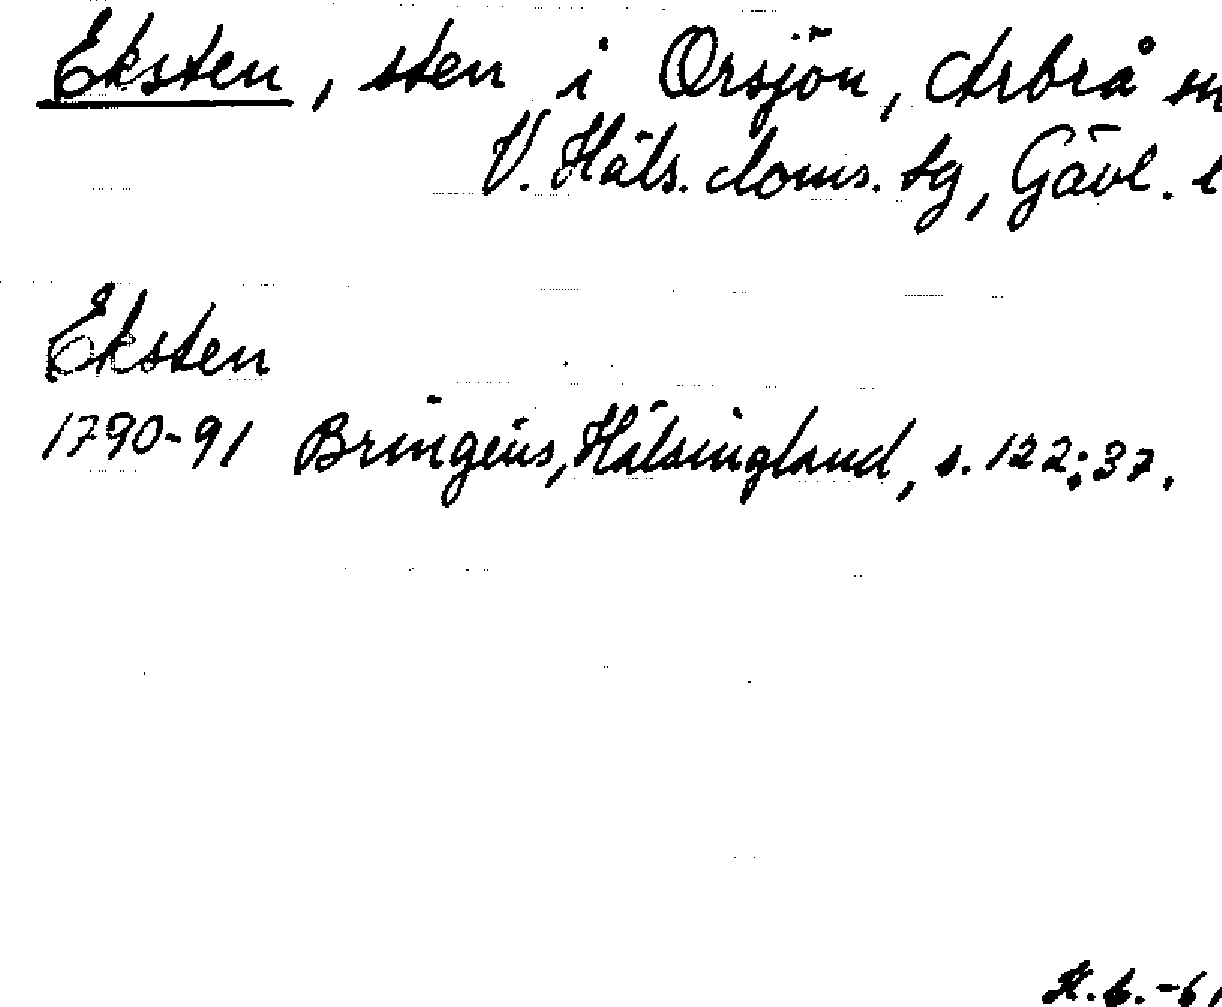 Eksten, sten i Orsjön, Arbrå sn
V. Häls. doms. tg, Gävl. l
Eksten
1790-91 Bringéus, Hälsingland, s. 122:37.